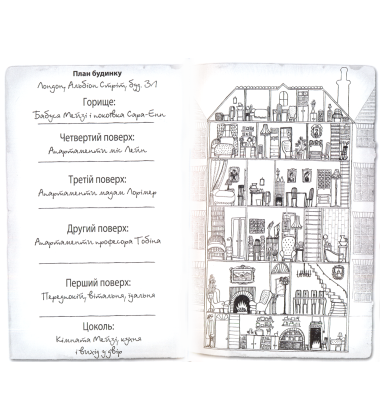 План будинку
Лондон, Альбіон Стріт, буд. 31
Горище:
Бабуся Мейзі і покоївка Сара-Енн
Четвертий поверх:
Апартаменти міс Лейн
Третій поверх:
Апартаменти мадам Лорімер
Другий поверх:
Апартаменти професора Тобіна
Перший поверх:
Передпокій, вітальня, їдальня
Цоколь:
Кімната Мейзі, кухня
і вихід у двір